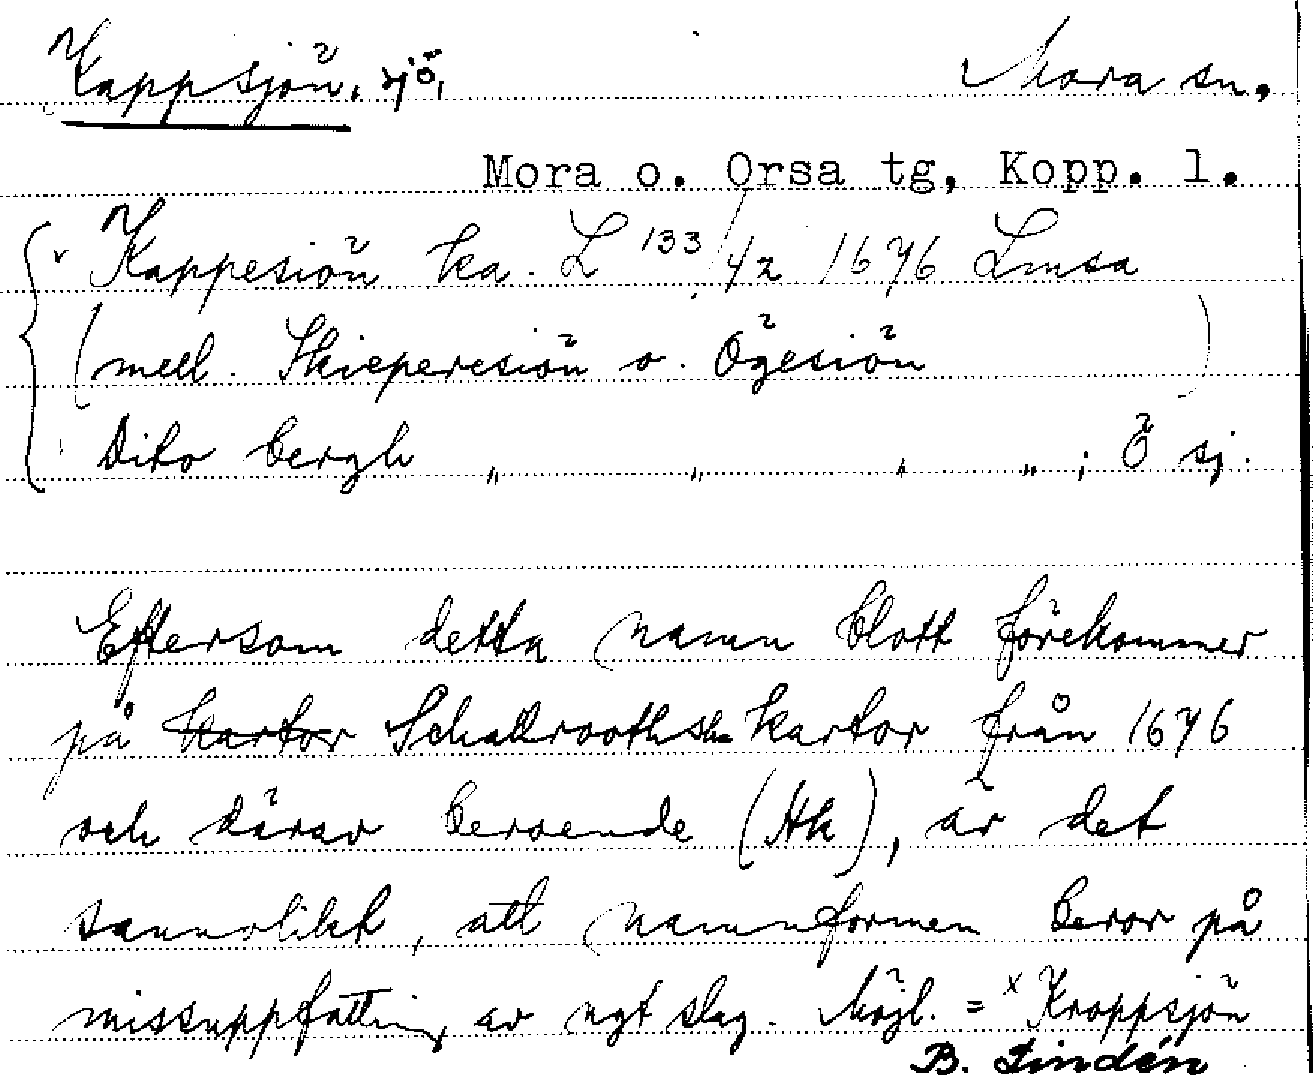 Kappsjön, sjö, Mora sn,
Mora o. Orsa tg, Kopp. l.
Kappesiön ka. L 133/42 1676 Lmsa
(mell. Skieperesiön o. Ögesiön)
Dito bergh „ „ „ „ ; Ö sj.
Eftersom detta namn blott förekommer
på kartor Schallrooths kartor från 1676
och därav beroende (Hk), är det
sannolikt, att namnformen beror på
missuppfattning av ngt slag. Möjl. = x Kroppsjön
B. Lindén